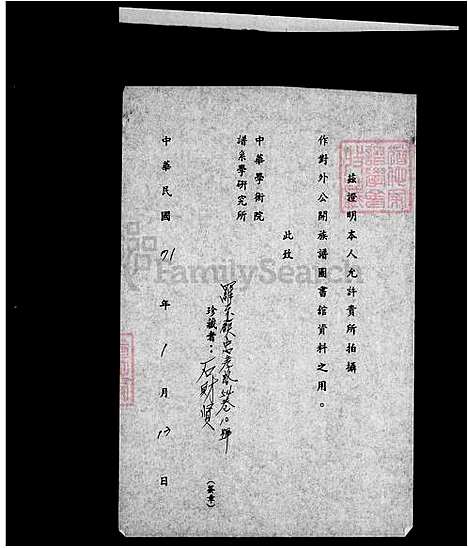 茲證明本人允許貴所拍攝
作對外公開族譜圖書舘資料之用。
此致
中華學術院
譜系學研究所
羅東鎮忠孝路54巷10號
珍藏者：石財貿 (簽章)
中華民國71年1月13日
FamilySearch